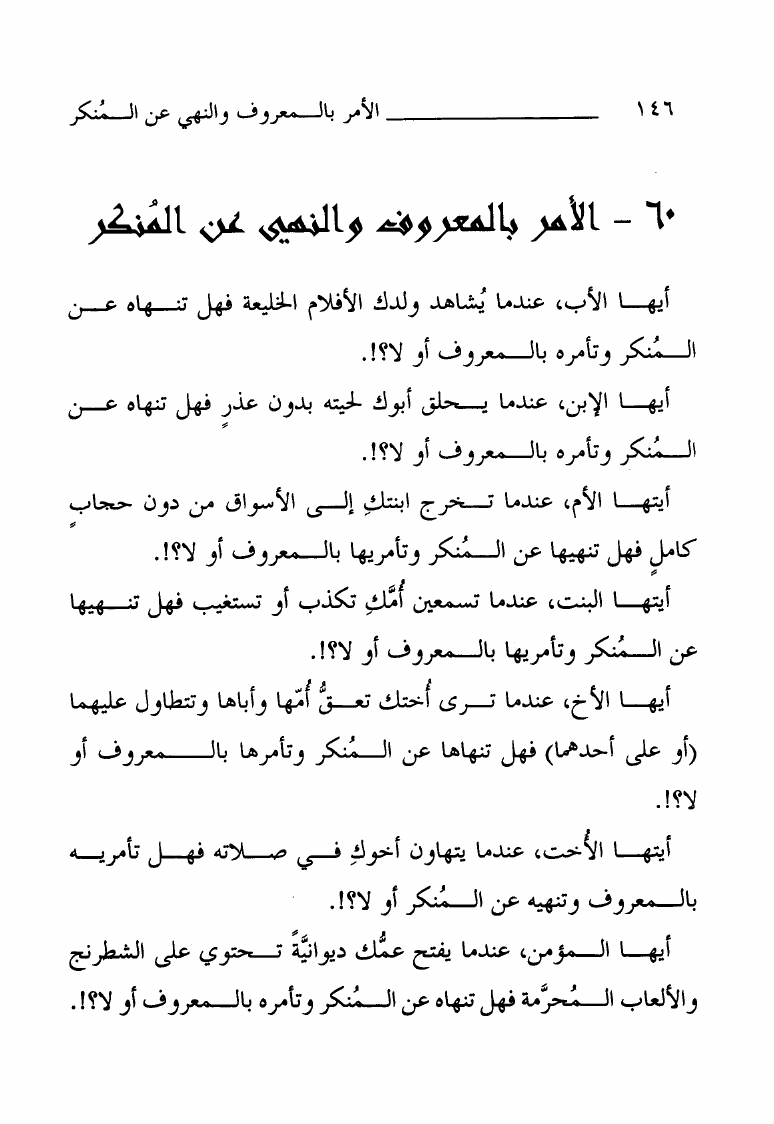 ١٤٦ ــــــــــــــــ الأمر بالـمعروف والنهي عن الـمُنكر
٦٠ - الأمر بالمعروف والنهي عن المُنكر
أيهـا الأب، عندما يُشاهد ولدك الأفلام الخليعة فهل تنـهاه عـن
الـمُنكر وتأمره بالـمعروف أو لا؟!.
أيهـا الإبن، عندما يـحلق أبوك لحيته بدون عذرٍ فهل تنهاه عـن
الـمُنكر وتأمره بالـمعروف أو لا؟!.
أيتهـا الأم، عندما تـخرج ابنتكِ إلـى الأسواق من دون حجابٍ
كاملٍ فهل تنهيها عن الـمُنكر وتأمريها بالـمعروف أو لا؟!.
أيتهـا البنت، عندما تسمعين أُمَّكِ تكذب أو تستغيب فهل تنـهيها
عن الـمُنكر وتأمريها بالـمعروف أو لا؟!.
أيهـا الأخ، عندما تـرى أُختك تعـقُّ أُمّها وأباها وتتطاول عليهما
(أو على أحدهما) فهل تنهاها عن الـمُنكر وتأمرها بالـمعروف أو
لا؟!.
أيتهـا الأُخت، عندما يتهاون أخوكِ فـي صـلاته فهـل تأمريـه
بالـمعروف وتنهيه عن الـمُنكر أو لا؟!.
أيهـا الـمؤمن، عندما يفتح عمُّك ديوانيَّةً تـحتوي على الشطرنج
والألعاب الـمُحرَّمة فهل تنهاه عن الـمُنكر وتأمره بالـمعروف أو لا؟!.